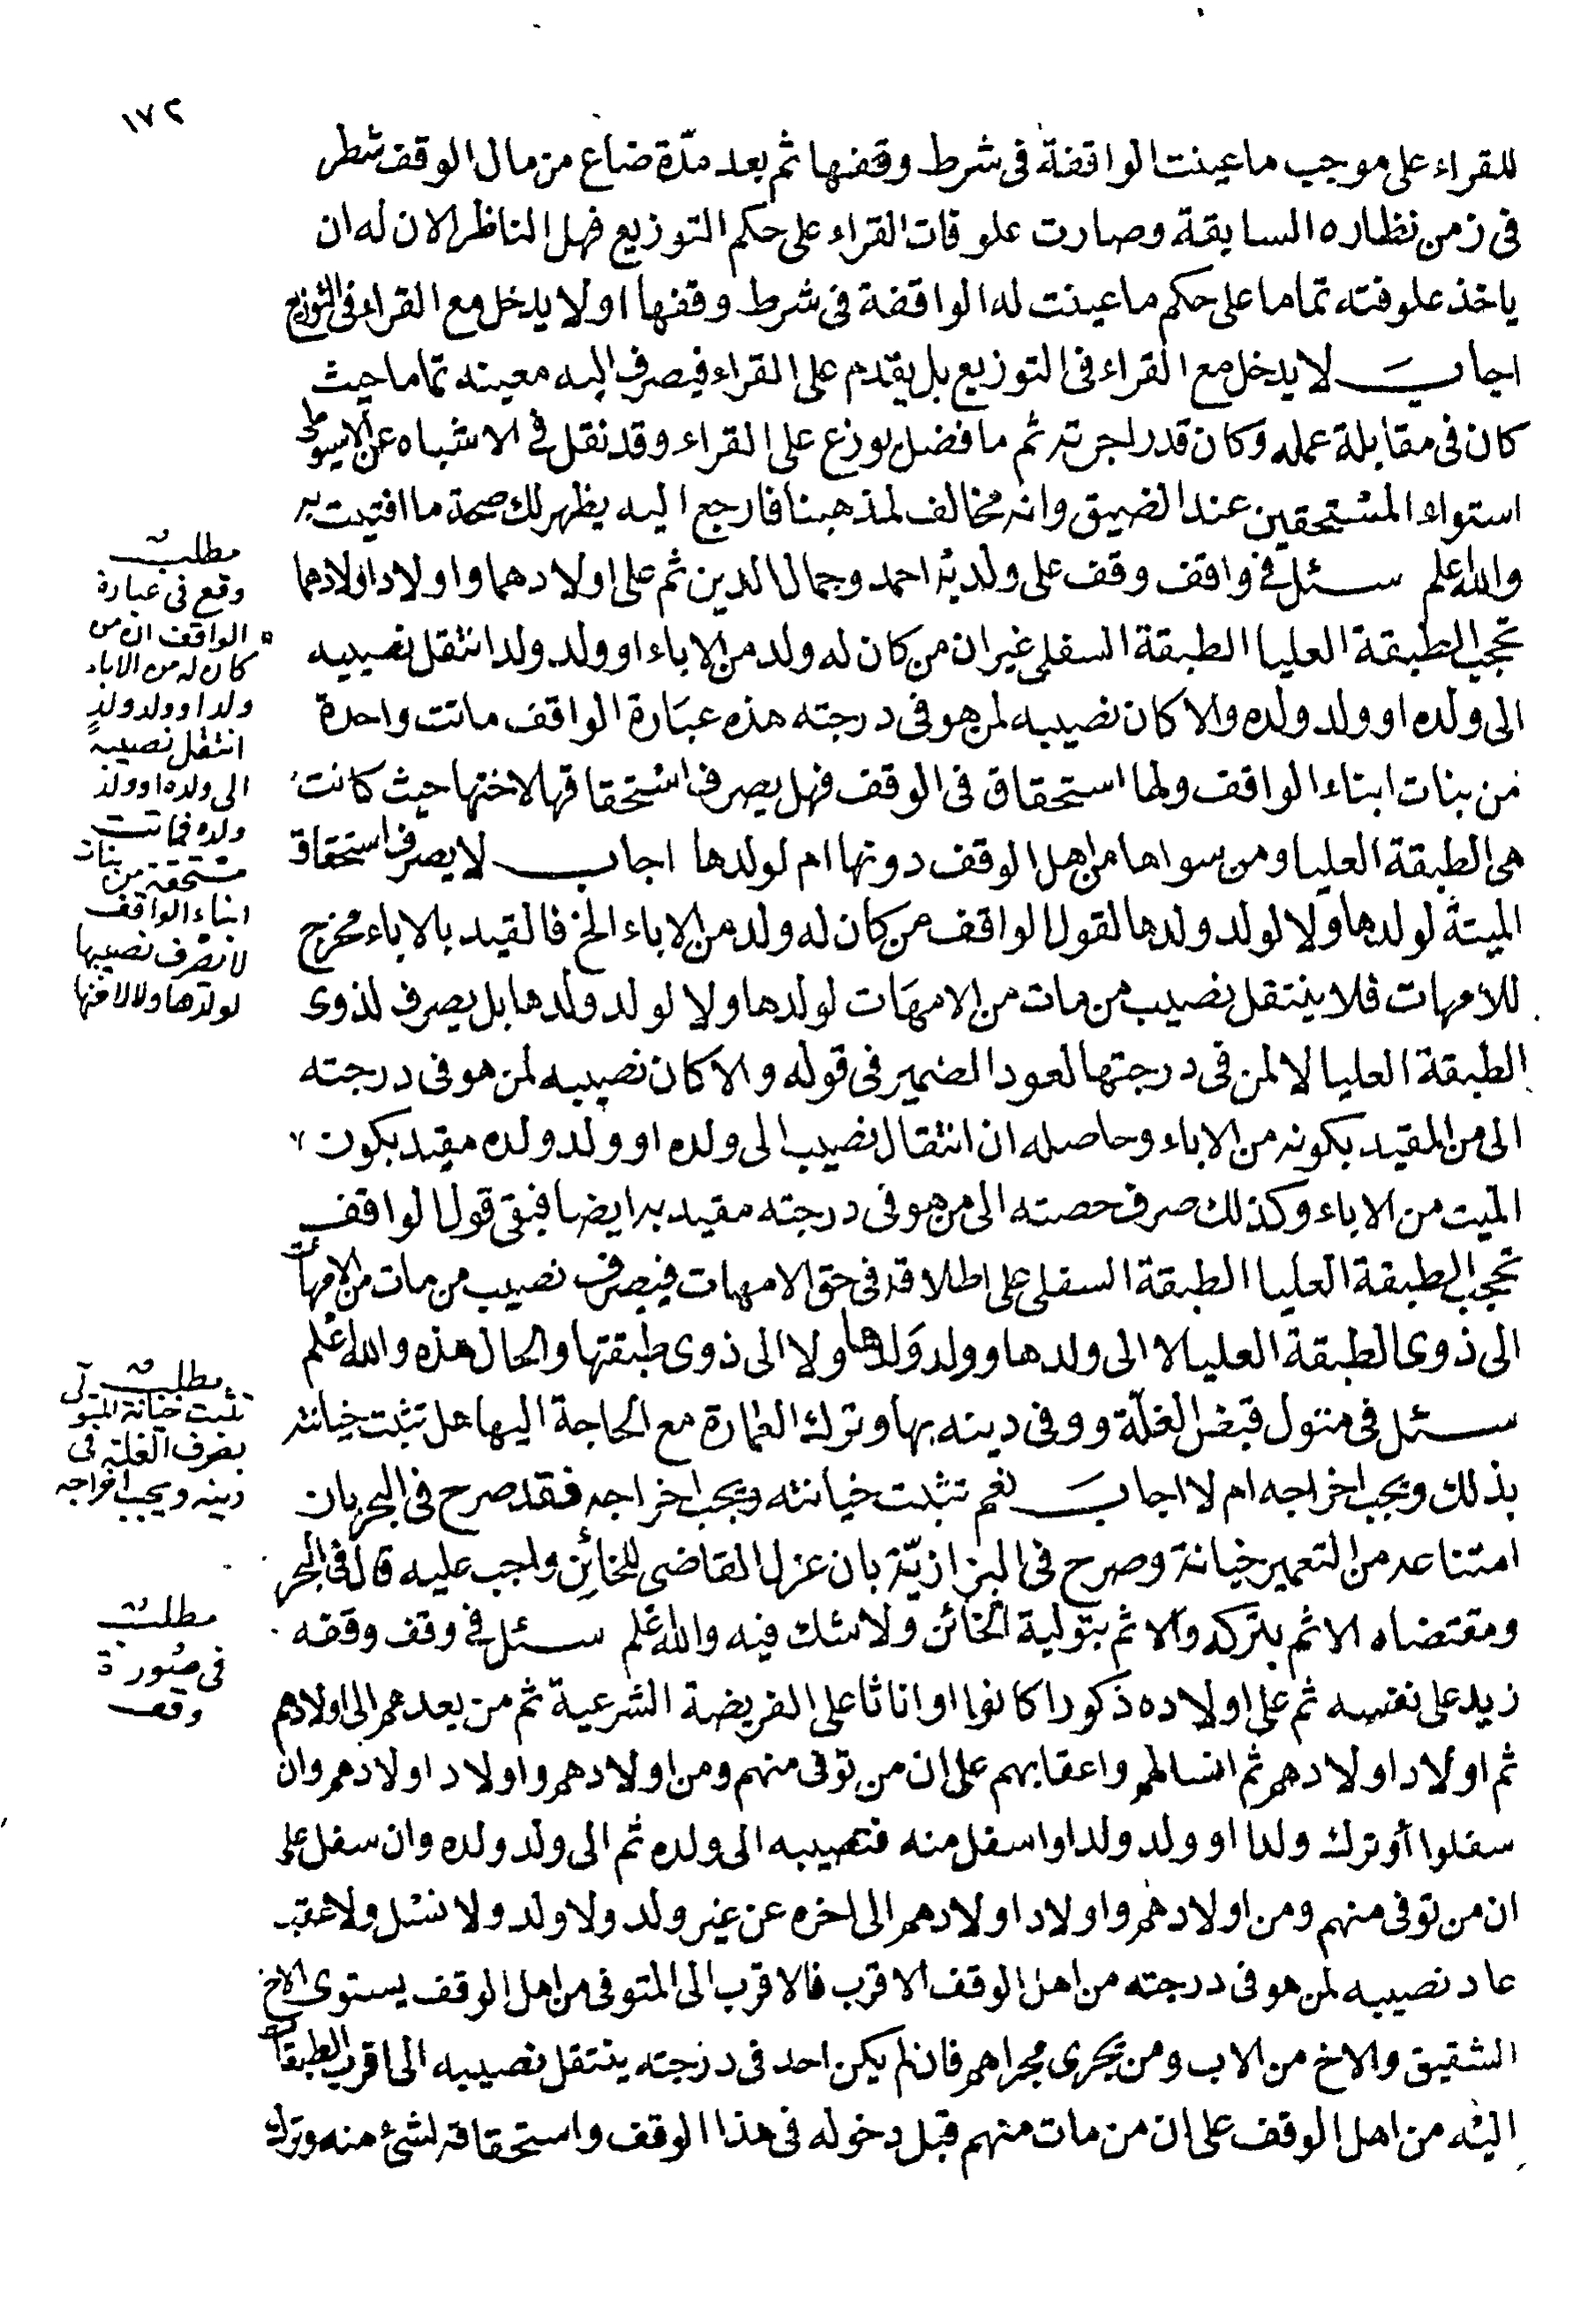 ١٧٢
للقراء على موجب ما عينت الواقفة فى شرط وقفها ثم بعد مدّة ضاع من مال الوقف شطر
فى زمن نظاره السابقة وصارت علوفات القراء على حكم التوزيع فهل الناظر الان له ان
ياخذ علوفته تماما على حكم ما عينت له الواقفة فى شرط وقفها او لا يدخل مع القراء فى التوزيع
اجاب لا يدخل مع القراء فى التوزيع بل يقدم على القراء فيصرف اليه معينه تماما حيث
كان فى مقابلة عمله وكان قدر اجرته ثم ما فضل يوزع على القراء وقد نقل فى الاشباه عن الاسيوطى
استواء المستحقين عند الضيق وانه مخالف لمذهبنا فارجع اليه يظهر لك صحة ما افتيت به
والله اعلم سئل فى واقف وقف على ولديه احمد وجمال الدين ثم على اولادهما واولاد اولادهما
تحجب الطبقة العليا الطبقة السفلى غير ان من كان له ولد من الاباء او ولد ولد انتقل نصيبه
الى ولده او ولد ولده والا كان نصيبه لمن هو فى درجته هذه عبَارة الواقف ماتت واحدة
من بنات ابناء الواقف ولها استحقاق فى الوقف فهل يصرف استحقاقها لاختها حيث كانت
هى الطبقة العليا ومن سواها من اهل الوقف دونها ام لولدها اجاب لا يصرف استحقاق
الميتة لولدها ولا لولد ولدها لقول الواقف من كان له ولد من الاباء الخ فالقيد بالاباء مخرج
للأمهات فلا ينتقل نصيب من مات من الامهَات لولدها ولا لولد ولدها بل يصرف لذوى
الطبقة العليا لا لمن فى درجتها لعود الضمير فى قوله والا كان نصيبه لمن هو فى درجته
الى من المقيد بكونه من الاباء وحاصله ان انتقال نصيب الى ولده او ولد ولده مقيد بكون
الميت من الاباء وكذلك صرف حصته الى من هو فى درجته مقيد به ايضا فبقى قول الواقف
تحجب الطبقة العليا الطبقة السفلى على اطلاقه فى حق الامهات فيصرف نصيب من مات من الامهات
الى ذوى الطبقة العليا لا الى ولدها وولد وَلدها ولا الى ذوى طبقتها والحال هذه والله اعلم
سئل فى متول قبض الغلّة ووفى دينه بها وترك العمارة مع الحاجة اليها هل تثبت خيانته
بذلك ويجب اخراجه ام لا اجابَ نعم تثبت خيانته ويجب اخراجه فقد صرح فى البحر بان
امتناعه من التعمير خيانة وصرح فى البزازيّة بان عزل القاضى للخائن واجب عليه قال فى البحر
ومقتضاه الاثم بتركه والاثم بتولية الخائن ولا شك فيه والله اعلم سئل فى وقف وقفه
زيد على نفسه ثم على اولاده ذكورا كانوا او اناثا على الفريضة الشرعية ثم من بعدهم الى اولادهم
ثم اولاد اولادهم ثم انسالهم واعقابهم على ان من توفى منهم ومن اولادهم واولاد اولادهم وان
سفلوا أو ترك ولدا او ولد ولد او اسفل منه فنصيبه الى ولده ثم الى ولد ولده وان سفل على
ان من توفى منهم ومن اولادهم واولاد اولادهم الى اخره عن غير ولد ولا ولد ولد ولا نسل ولا عقب
عاد نصيبه لمن هو فى درجته من اهل الوقف الاقرب فالاقرب الى المتوفى من اهل الوقف يستوى الاخ
الشقيق والاخ من الاب ومن يجرى مجراهم فان لم يكن احد فى درجته ينتقل نصيبه الى اقرب الطبقات
اليه من اهل الوقف على ان من مات منهم قبل دخوله فى هذا الوقف واستحقاقه لشئ منه وترك
مطلب
وقع فى عبارة
الواقف ان من
كان له من الاباء
ولد او ولد ولدٍ
انتقل نصيبه
الى ولده او ولد
ولده فماتت
مستحقة من بنات
ابناء الواقف
لا تصرف نصيبها
لولدها ولا لاختها
مطلب
تثبت خيانة المتولى
بصرف الغلة فى
دينه ويجب اخراجه
مطلب
فى صورة
وقف